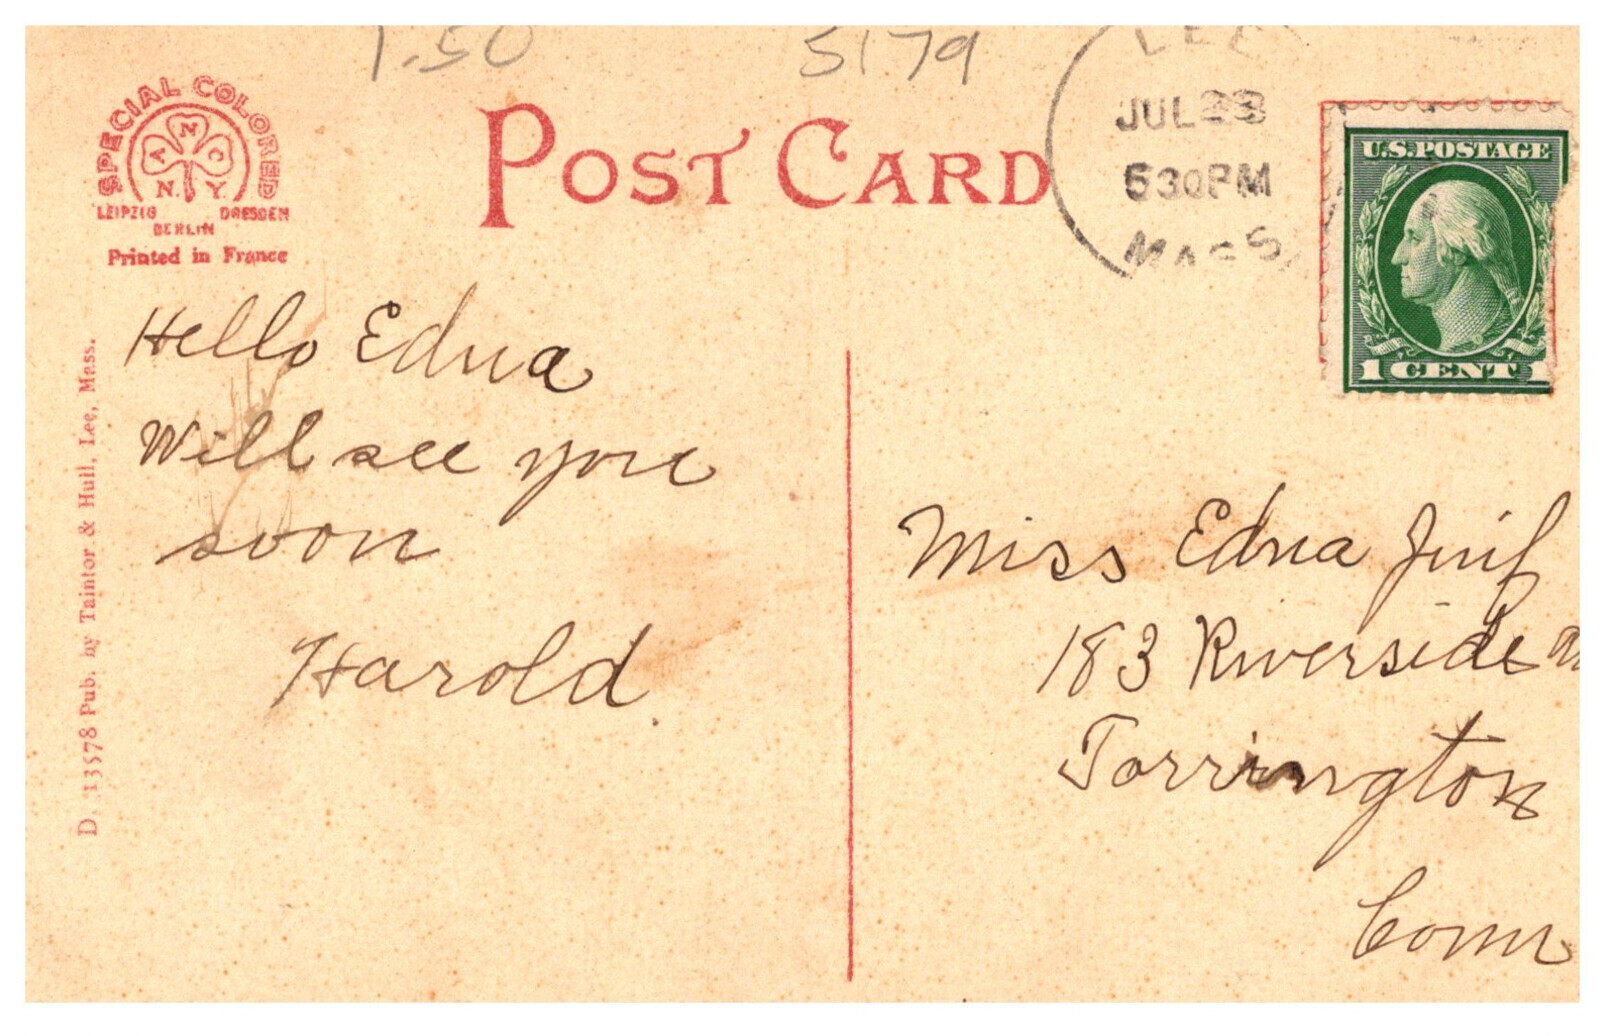 1.50
5179
SPECIAL COLORED
A N C
N. Y.
LEIPZIG DRESDEN
BERLIN
Printed in France
POST CARD
LEE
JUL 23
530PM
MASS.
U.S.POSTAGE
1 CENT 1
Hello Edna
Will see you
soon
Harold.
Miss Edna
183 Riverside
Torrington
Conn
D. 13578 Pub. by Taintor & Hull, Lee, Mass.